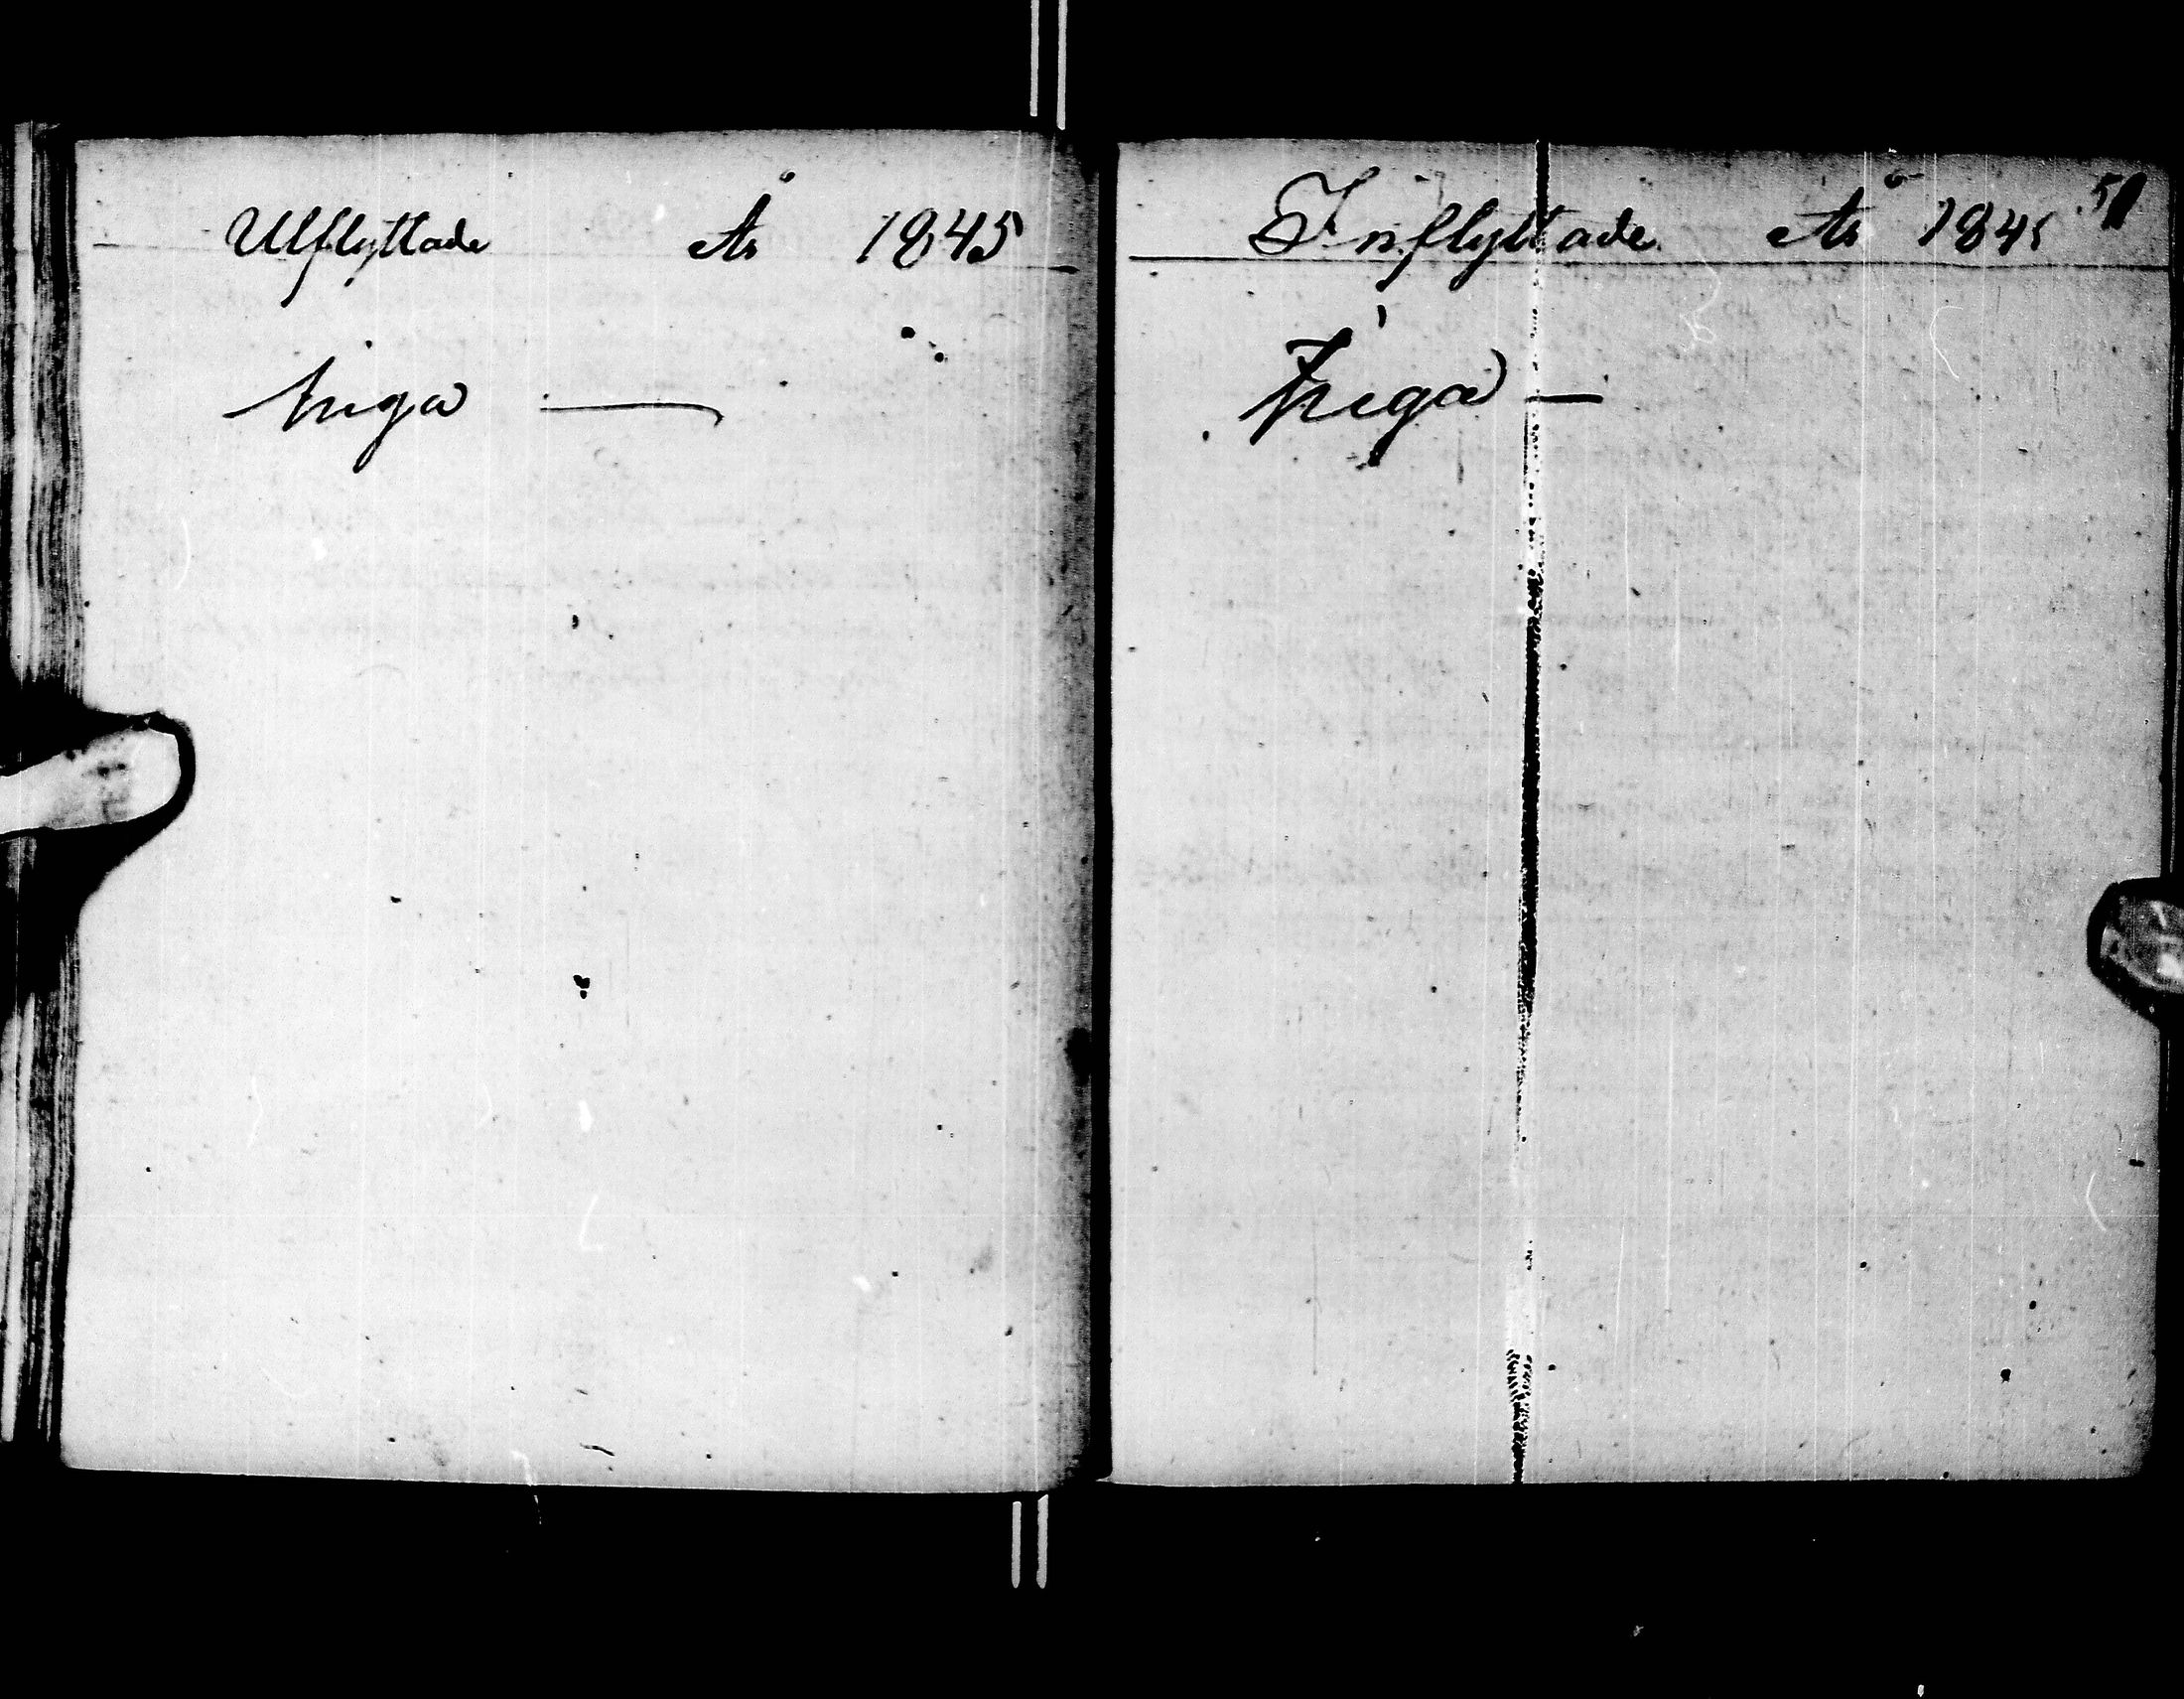 Utflyttade År 1845
Inga —
Inflyttade År 1845
Inga —